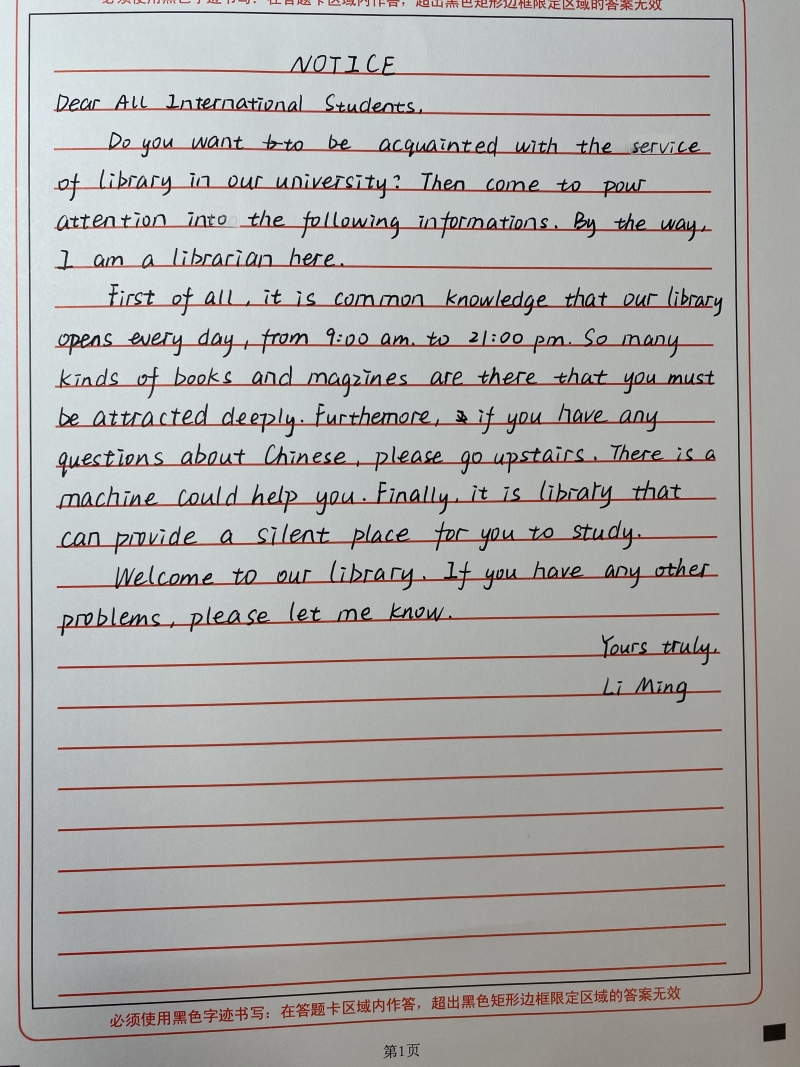 必须使用黑色字迹书写：在答题卡区域内作答，超出黑色矩形边框限定区域的答案无效
NOTICE
Dear All International Students,
Do you want to be acquainted with the service
of library in our university? Then come to pour
attention into the following informations. By the way,
I am a librarian here.
First of all, it is common knowledge that our library
opens every day, from 9:00 am. to 21:00 pm. So many
kinds of books and magzines are there that you must
be attracted deeply. Furthemore, if you have any
questions about Chinese, please go upstairs. There is a
machine could help you. Finally, it is library that
can provide a silent place for you to study.
Welcome to our library. If you have any other
problems, please let me know.
Yours truly,
Li Ming
必须使用黑色字迹书写：在答题卡区域内作答，超出黑色矩形边框限定区域的答案无效
第1页